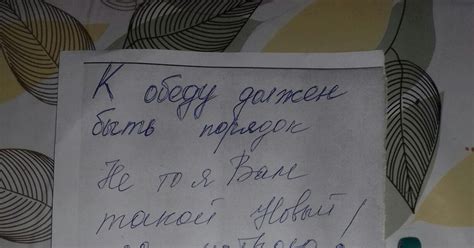 К обеду должен
быть порядок
Не то я Вам
такой Новый